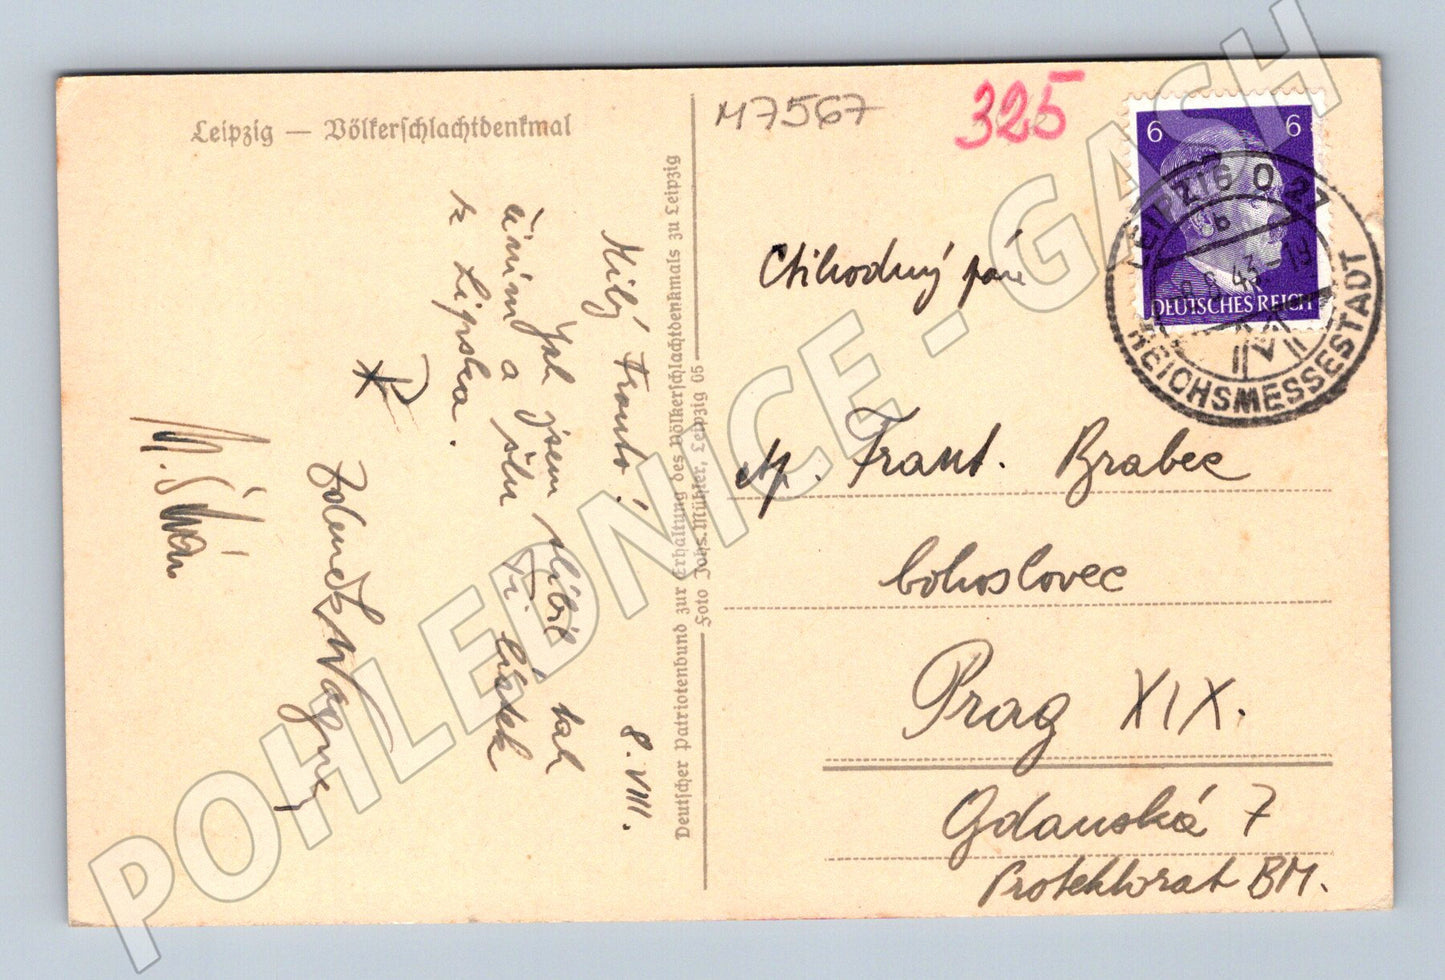 Leipzig — Völkerschlachtdenkmal
M7567
325
6 6
DEUTSCHES REICH
LEIPZIG O 27
b
8.43.-19
REICHSMESSESTADT
Deutscher Patriotenbund zur Erhaltung des Völkerschlachtdenkmals zu Leipzig
Foto Johs. Mühler, Leipzig O5
8. VIII.
Milý Franto!
Jak jsem slíbil tak
činím a šlu Ti lístek
z Lipska.
Wagner
M.
Ctihodný pán
Frant. Brabec
bohoslovec
Prag XIX.
Gdanská 7
Protektorat BM.
POHLEDNICE - GASH